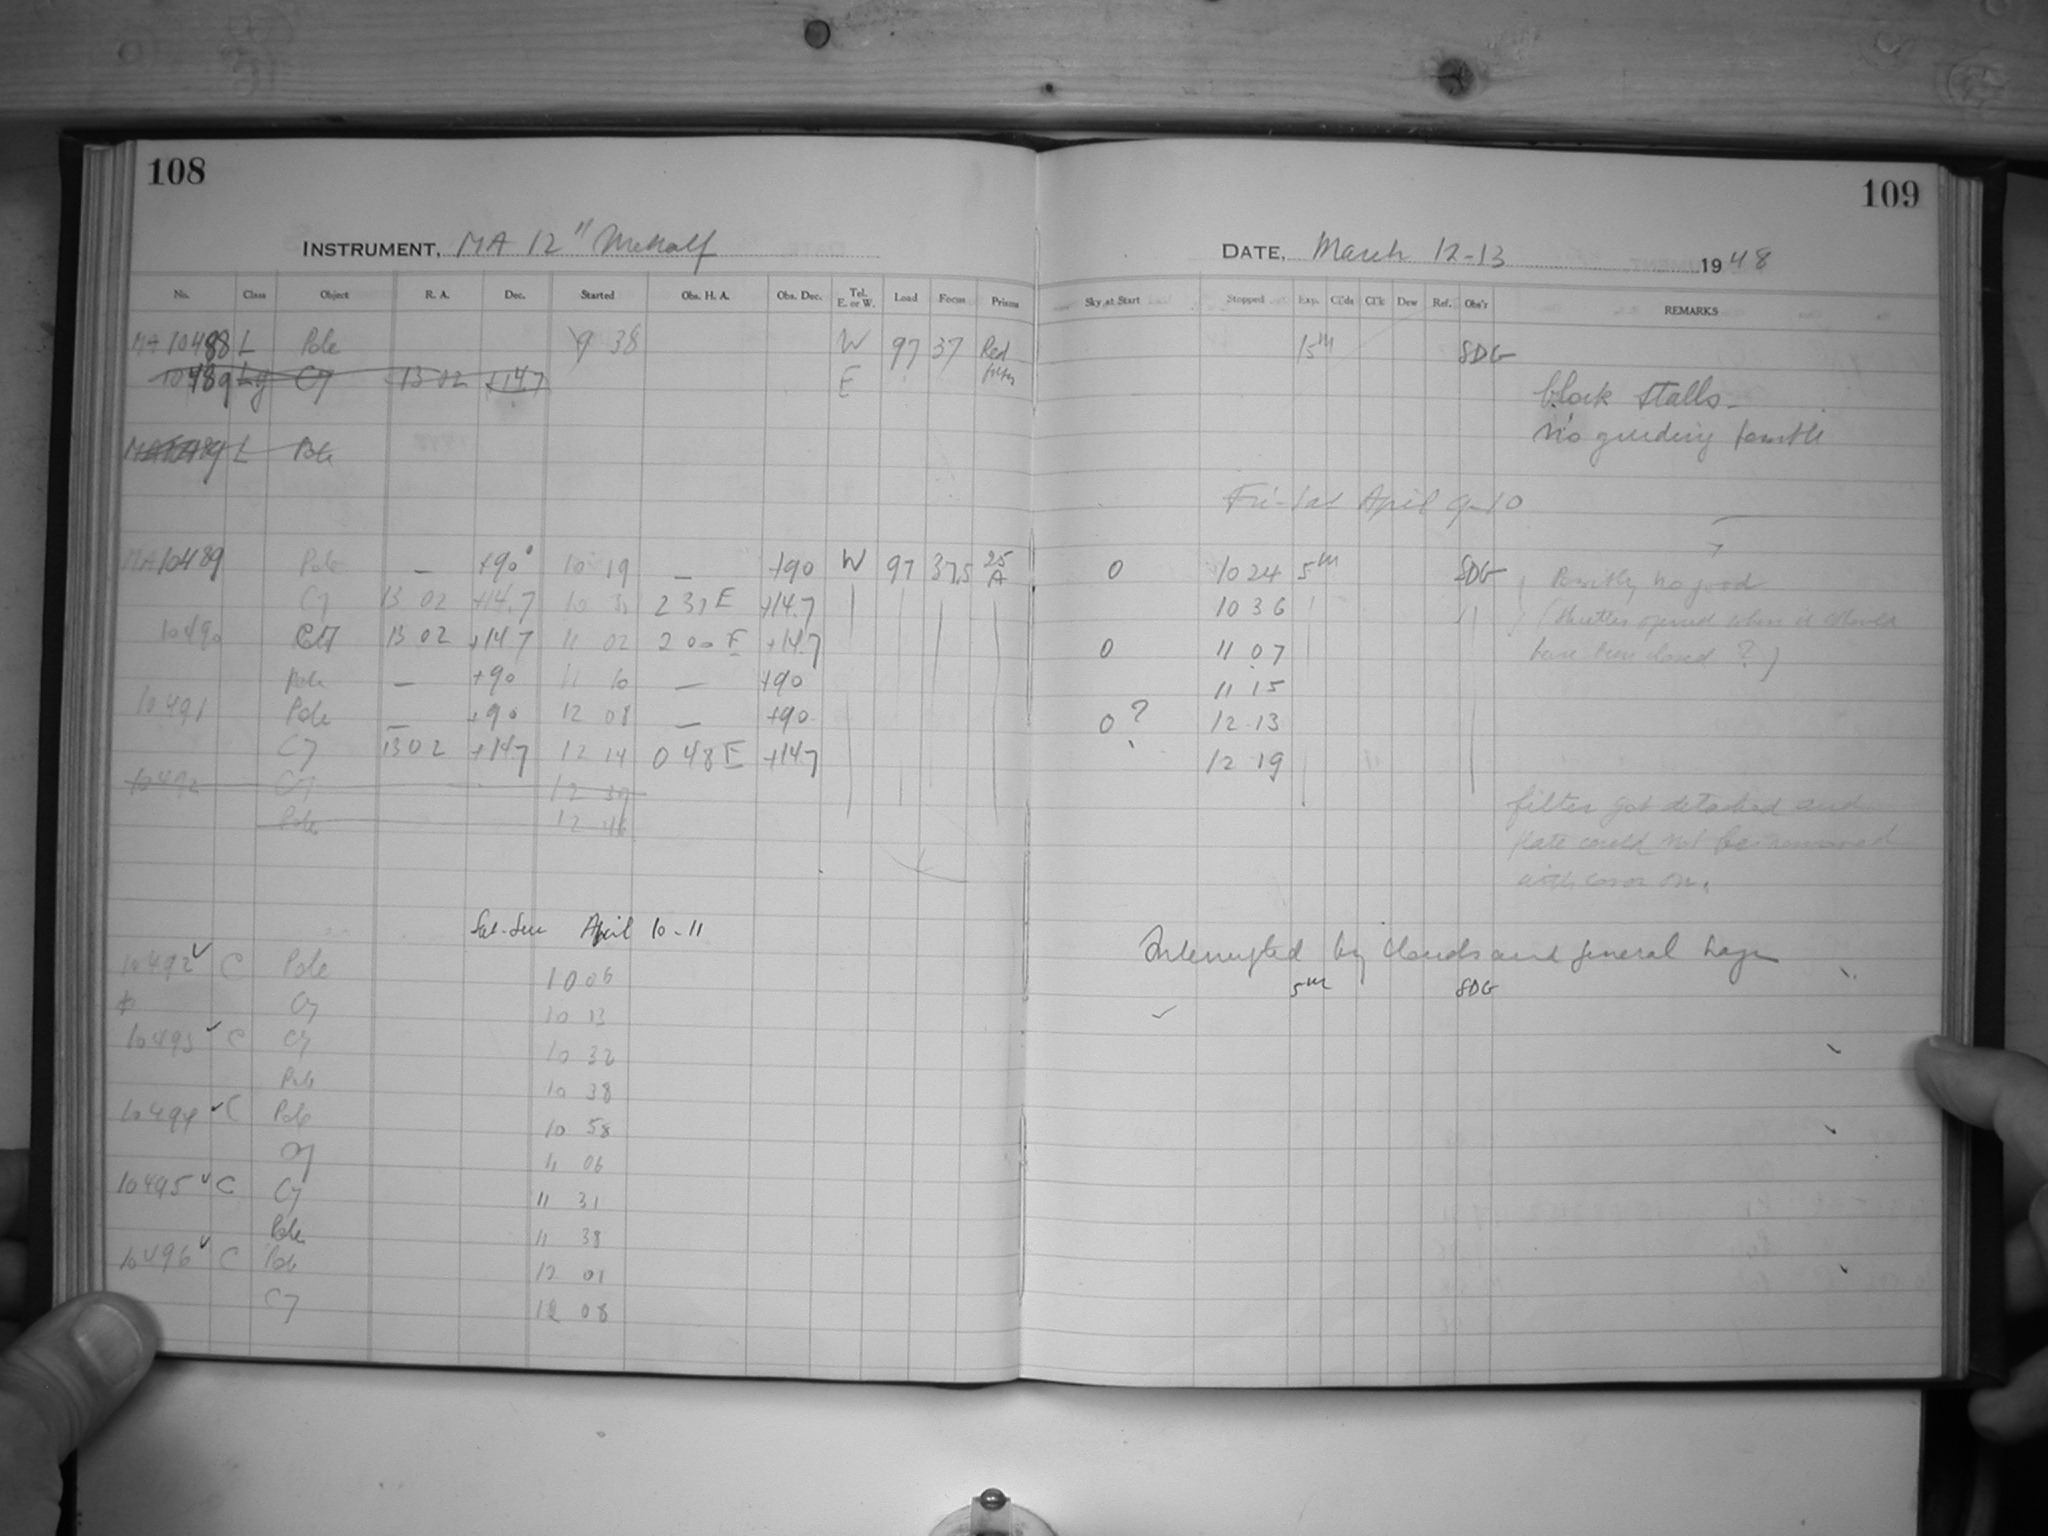 108
109
INSTRUMENT, MA 12" Metcalf
DATE, March 12-13 1948
No. Class Object R. A. Dec. Started Obs. H. A. Obs. Dec. Tel. E. or W. Load Focus Prisms Sky at Start Stopped Exp. Cl'ds Cl'k Dew Ref. Obs'r REMARKS
MA 10488 L Pole 9 38 W 97 37 Red filter 15m SDG
10489 Lg C7 13 02 +14.7 E
clock stalls -
no guiding possible
MA 10489 L Pole
Fri-Sat April 9-10
MA 10489 Pole — +90° 10 19 — +90 W 97 37.5 25 A 0 10 24 5m SDG Possibly no good
C7 13 02 +14.7 10 31 2 31 E +14.7 10 36 (Shutter opened when it should
10490 C7 13 02 +14.7 11 02 2 00 E +14.7 0 11 07 have been closed ?)
Pole — +90 11 10 — +90 11 15
10491 Pole — +90 12 08 — +90 0? 12 13
C7 13 02 +14.7 12 14 0 48 E +14.7 12 19
10492 C7 12 39
filter got detached and
Pole 12 46
plate could not be removed
with cover on.
Sat-Sun April 10-11
Interrupted by clouds and general haze
10492 ✓ C Pole 10 06 5m SDG
C7 10 13
10493 ✓ C C7 10 32
Pole 10 38
10494 ✓ C Pole 10 58
C7 11 06
10495 ✓ C C7 11 31
Pole 11 38
10496 ✓ C Pole 12 01
C7 12 08